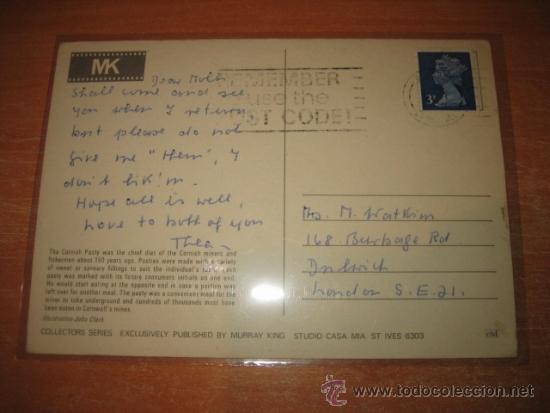 MK
REMEMBER
use the
POST CODE!
3P
Dear Molli
Shall come and see
you when I return
but please do not
give me "Them", I
don't lik'm.
Hope all is well,
love to both of you
Thea
Mrs. M. Watkins
168 Burbage Rd
Dulwich
London S.E.21.
The Cornish Pasty was the chief diet of the Cornish miners and
fishermen about 150 years ago. Pasties were made with a variety
of sweet or savoury fillings to suit the individual's taste, each
pasty was marked with its future consumers initials on one end.
He would start eating at the opposite end in case a portion was
left over for another meal. The pasty was a convenient meal for the
miner to take underground and hundreds of thousands must have
been eaten in Cornwall's mines.
Illustration John Clark
COLLECTORS SERIES EXCLUSIVELY PUBLISHED BY MURRAY KING STUDIO CASA MIA ST IVES 6303
todocoleccion
www.todocoleccion.net